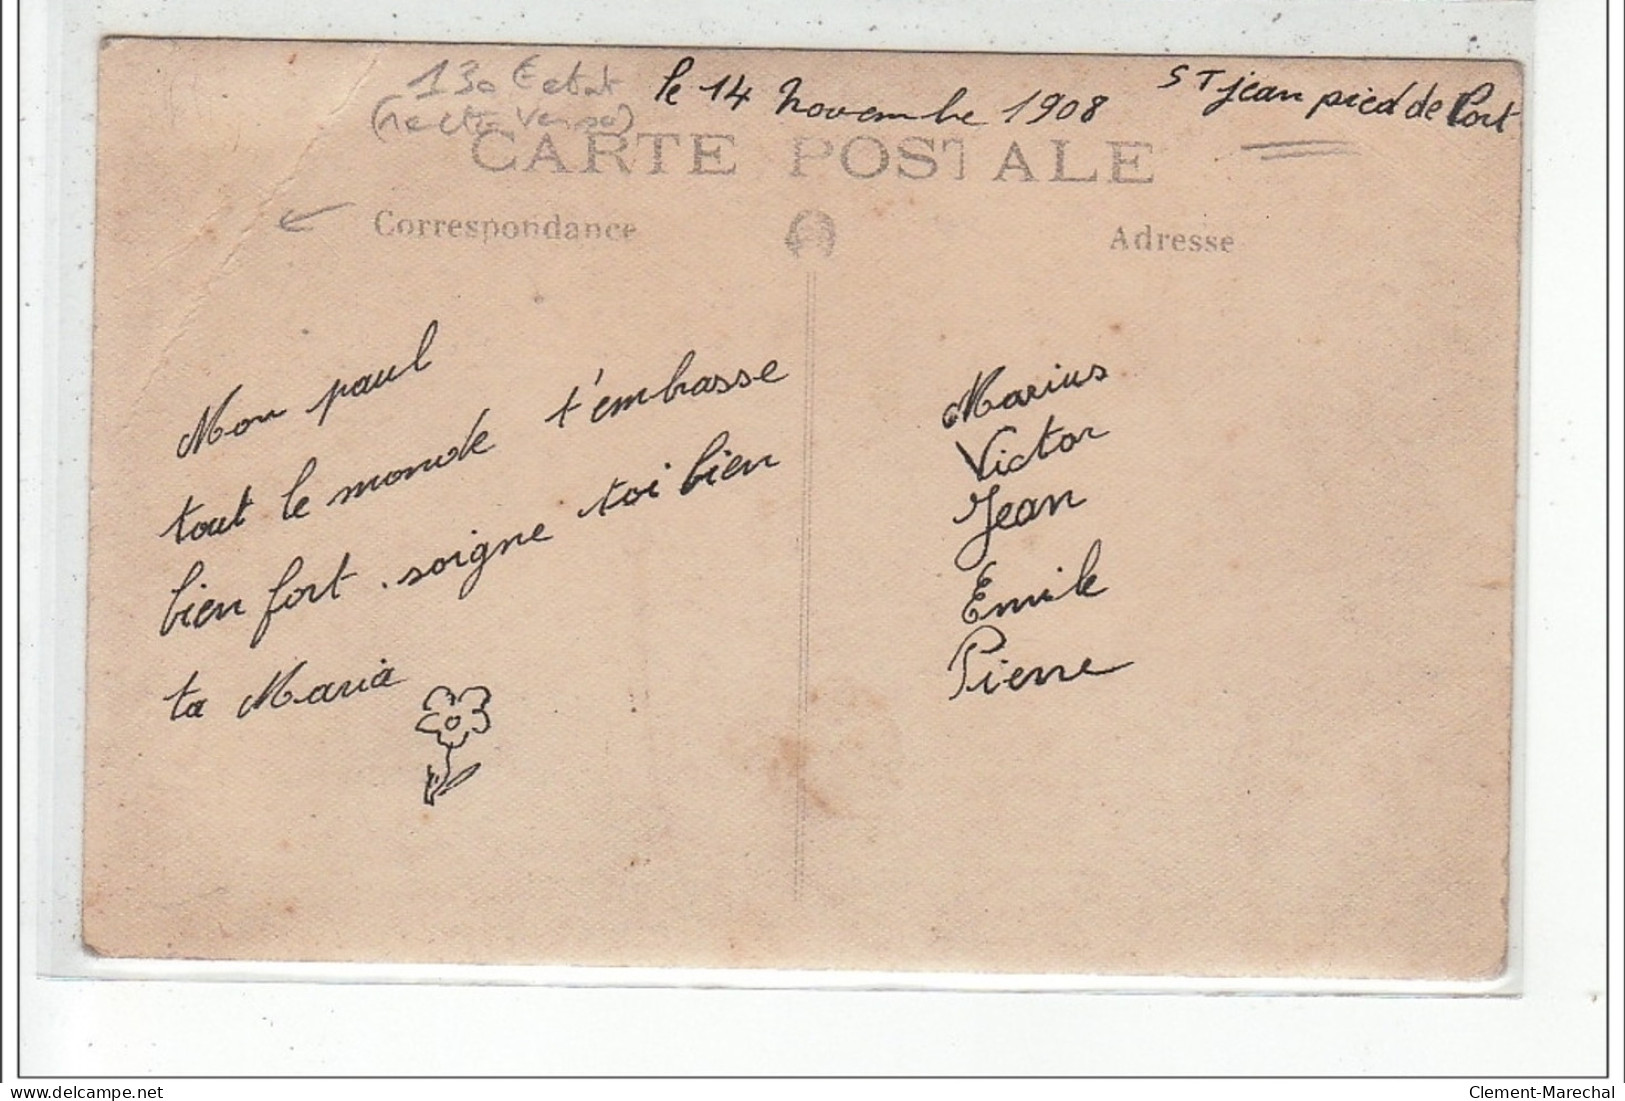 130 € état
(recto verso)
le 14 novembre 1908
ST jean pied de Port
CARTE POSTALE
Correspondance
Adresse
Mon paul
tout le monde t'embrasse
bien fort. soigne toi bien
ta Maria
Marius
Victor
Jean
Emile
Pierre
Clement-Marechal